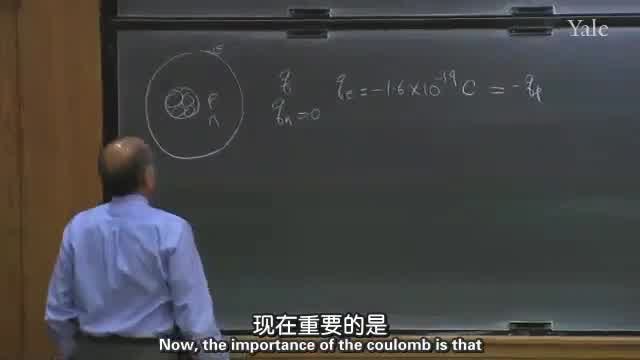 Yale
e
P
n
q
qₙ = 0
qₑ = -1.6 × 10⁻¹⁹ C = -qₚ
现在重要的是
Now, the importance of the coulomb is that